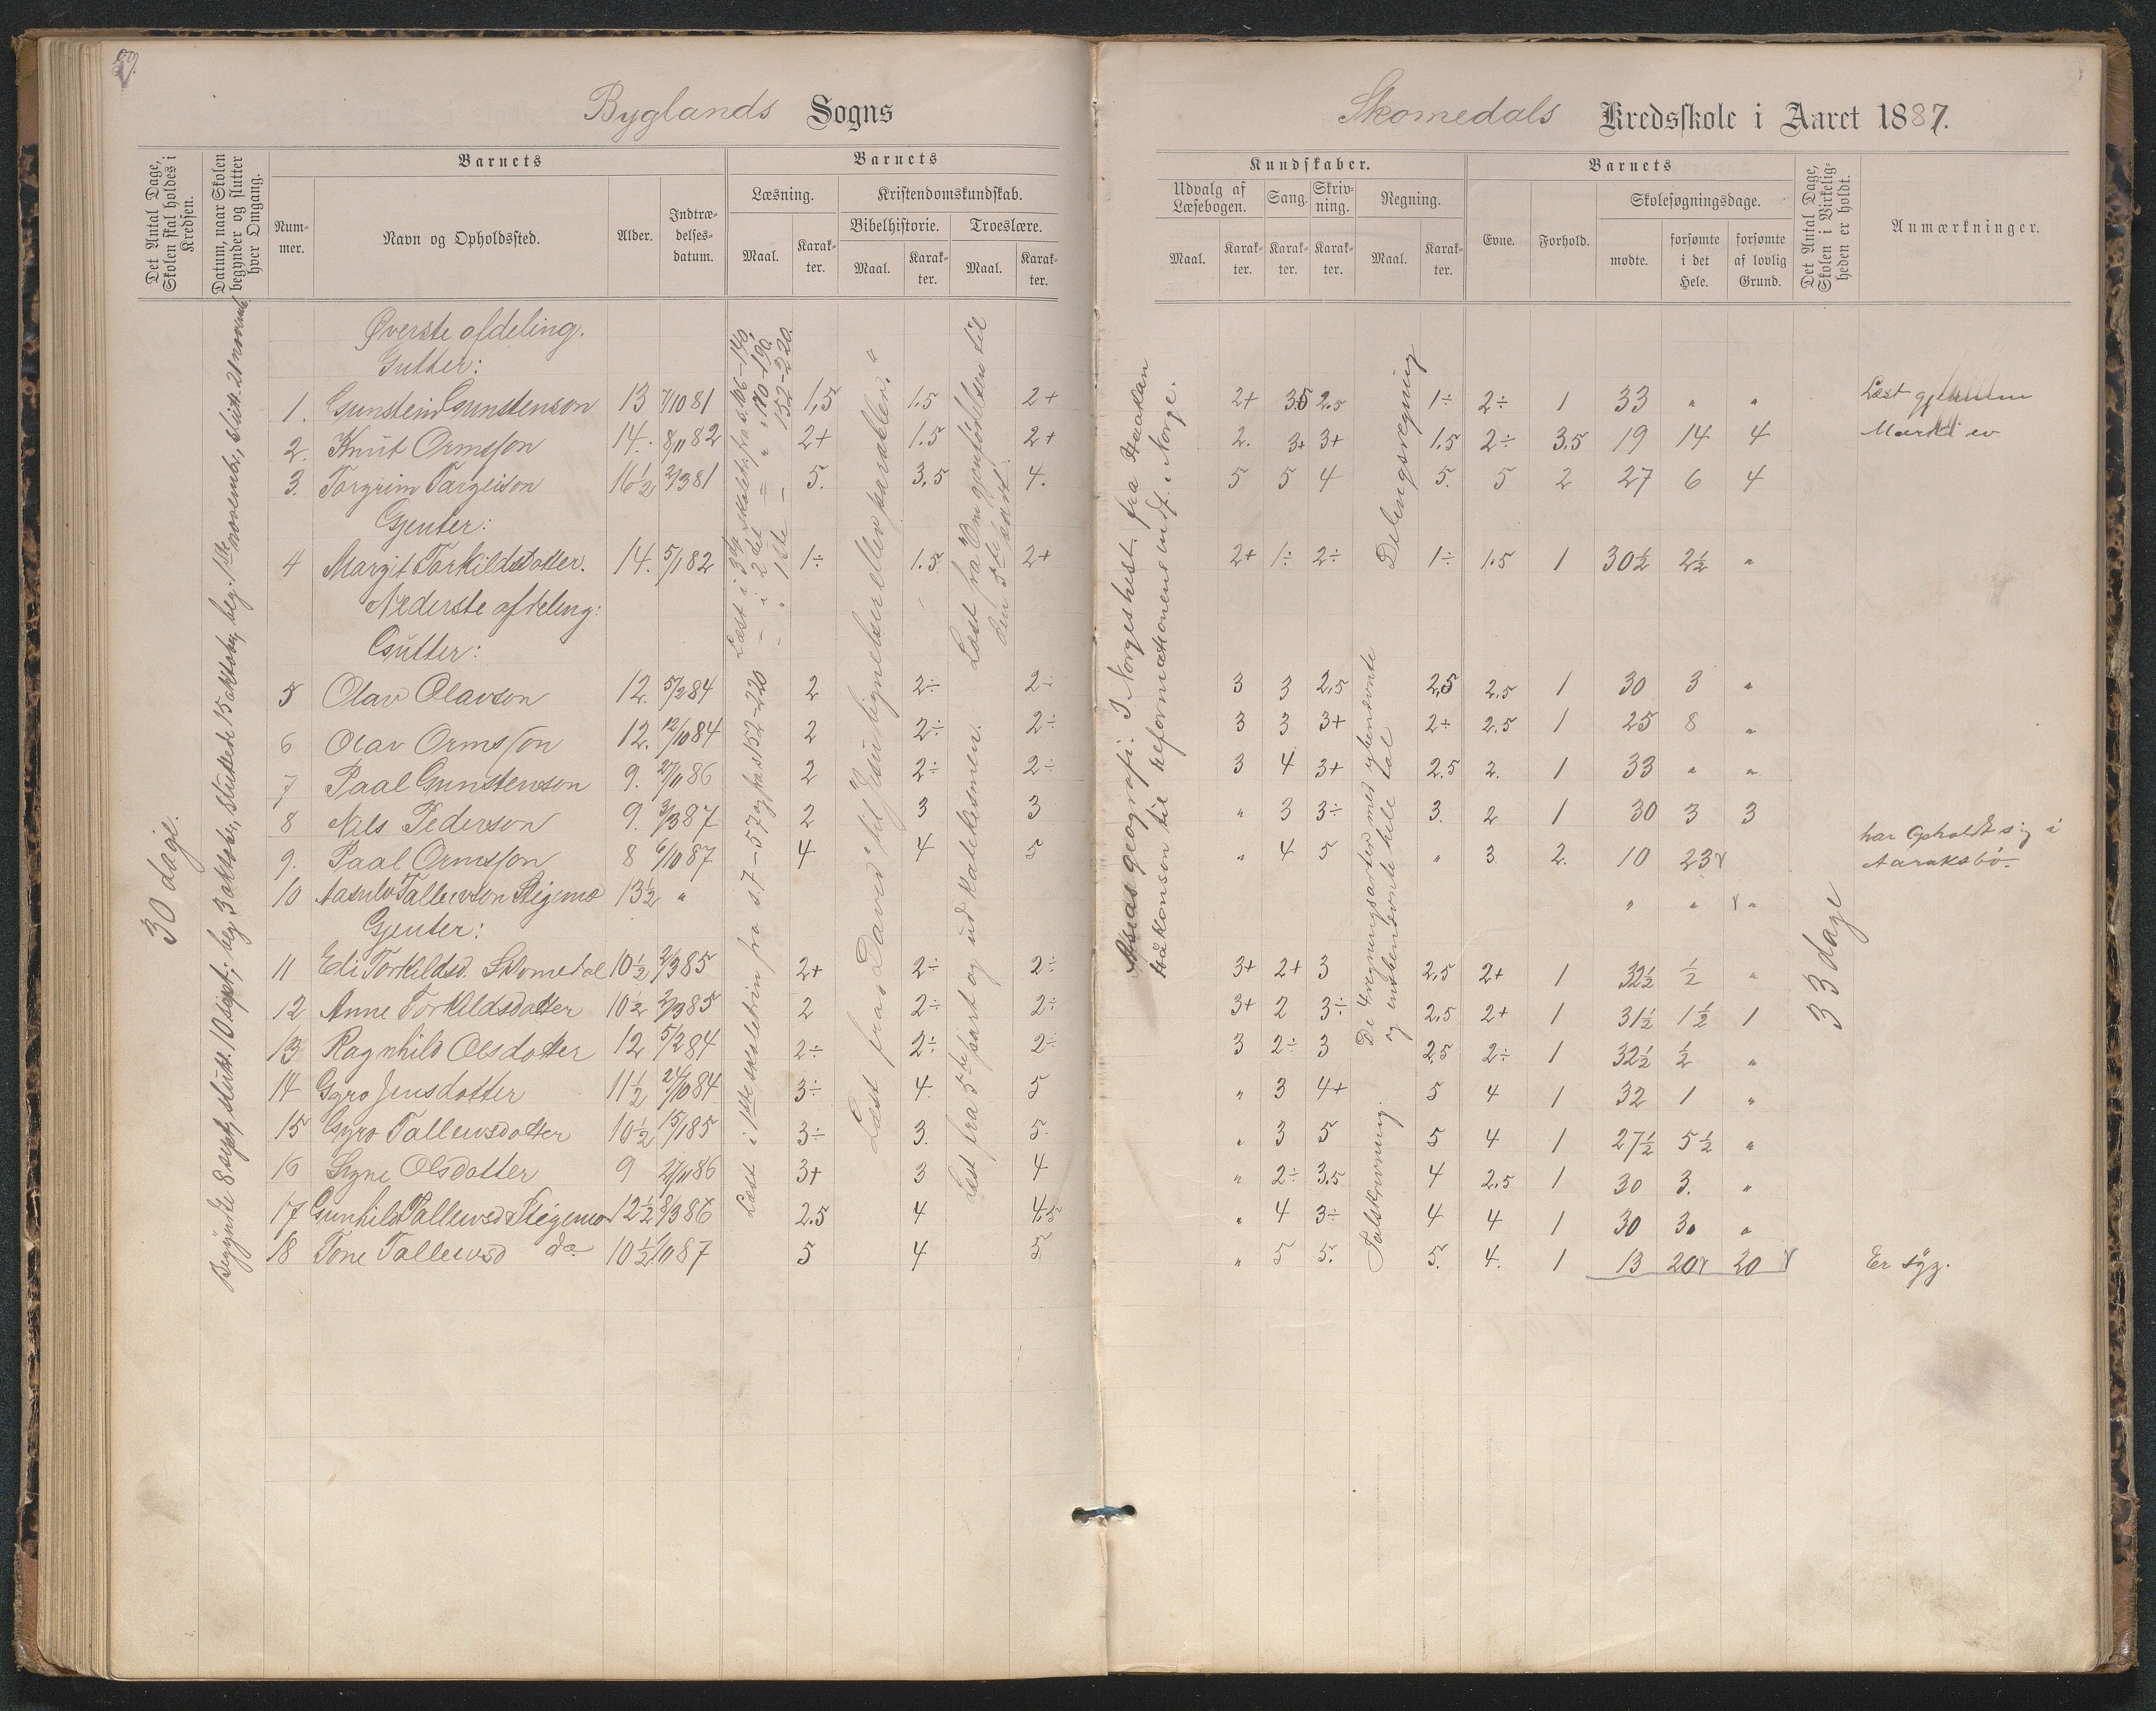 Byglands Sogns
Skomedals Kredsskole i Aaret 1887.
Det Antal Dage, Skolen skal holdes i Kredsen.
Datum, naar Skolen begynder og slutter hver Omgang.
Barnets
Nummer.
Navn og Opholdssted.
Alder.
Indtrædelsesdatum.
Barnets
Læsning.
Maal.
Karakter.
Kristendomskundskab.
Bibelhistorie.
Maal.
Karakter.
Troeslære.
Maal.
Karakter.
Kundskaber.
Udvalg af Læsebogen.
Maal.
Karakter.
Sang.
Karakter.
Skrivning.
Karakter.
Regning.
Maal.
Karakter.
Barnets
Evne.
Forhold.
Skolesøgningsdage.
mødte.
forsømte i det Hele.
forsømte af lovlig Grund.
Det Antal Dage, Skolen i Virkeligheden er holdt.
Anmærkninger.
30 dage.
Begyndte 8 sept, slutt. 10 sept; beg. 3 oktober, sluttede 15 oktober, beg. 1ste november, slutt. 21 novemb
Læst i 3die skoletr. fra s. 106-140,
— i 2det — " 170-190,
— " 1ste — 152-220.
Læst i 1ste skoletrin fra s. 7-57 og fra s 152-220
Læst fra „David" til „Jesu lignelser eller parabler."
Læst fra Om gjenfødelsen til den 5te part.
Læst fra 5te part og ud katekismen.
Asias geografi. I Norgeshist. fra Haakan
Håkonson til reformationens indf. i Norge.
Delingsregning
De 4 regningsarter med ubenevnte
og ensbenevnte hele tal
Talskrivning.
33 dage
Øverste afdeling.
Gutter:
1. Gunstein Gunstenson 13 7/10 81 1,5 1.5 2+ 2+ 3.5 2.5 1÷ 2÷ 1 33 " " Læst
2. Knut Ormsson 14. 8/11 82 2+ 1.5 2+ 2. 3+ 3+ 1.5 2÷ 3.5 19 14 4
3. Torgrim Targeison 16½ 2/3 81 5. 3,5 4. 5 5 4 5. 5 2 27 6 4
Gjenter:
4 Margit Torkildsdotter. 14. 5/1 82 1÷ 1.5 2+ 2+ 1÷ 2÷ 1÷ 1.5 1 30½ 2½ "
Nederste afdeling:
Gutter:
5 Olav Olavson 12. 5/2 84 2 2÷ 2÷ 3 3 2,5 2,5 2.5 1 30 3 "
6 Olav Ormsson 12. 12/10 84 2 2÷ 2÷ 3 3 3+ 2÷ 2.5 1 25 8 "
7 Paal Gunstenson 9. 27/11 86 2 2÷ 2÷ 3 4 3+ 2.5 2. 1 33 " "
8 Nils Pederson 9. 3/3 87 2 3 3 " 3 3÷ 3. 2 1 30 3 3
9. Paal Ormsson 8 6/10 87 4 4 5 " 4 5 " 3 2. 10 23 har Opholdt sig i Aaraksbø
10 Aasulv Tallevson Stigemo 13½ " " " "
Gjenter:
11 Edi Torkildsd. Skomedal 10½ 2/3 85 2+ 2÷ 2÷ 3+ 2+ 3 2,5 2+ 1 32½ ½ "
12 Anne Torkildsdotter 10½ 2/3 85 2 2÷ 2÷ 3+ 2 3÷ 2,5 2+ 1 31½ 1½ 1
13 Ragnhild Olsdotter 12 5/2 84 2÷ 2÷ 2÷ 3 2÷ 3 2,5 2÷ 1 32½ ½ "
14 Gyro Jensdotter 11½ 24/10 84 3÷ 4. 5 " 3 4+ 5 4 1 32 1 "
15 Gyro Tallevsdotter 10½ 15/1 85 3÷ 3. 5. " 3 5 5 4 1 27½ 5½ "
16 Signe Olsdotter 9 27/11 86 3+ 3 4 " 2÷ 3,5 4 2.5 1 30 3. "
17 Gunhild Tallevsd Stigemo 12½ 8/3 86 2.5 4 4.5 " 4 3÷ 4 4 1 30 3. "
18 Tone Tallevsd do 10½ 1/10 87 5 4 5 " 5 5. 5. 4. 1 13 20 20 Er syg.